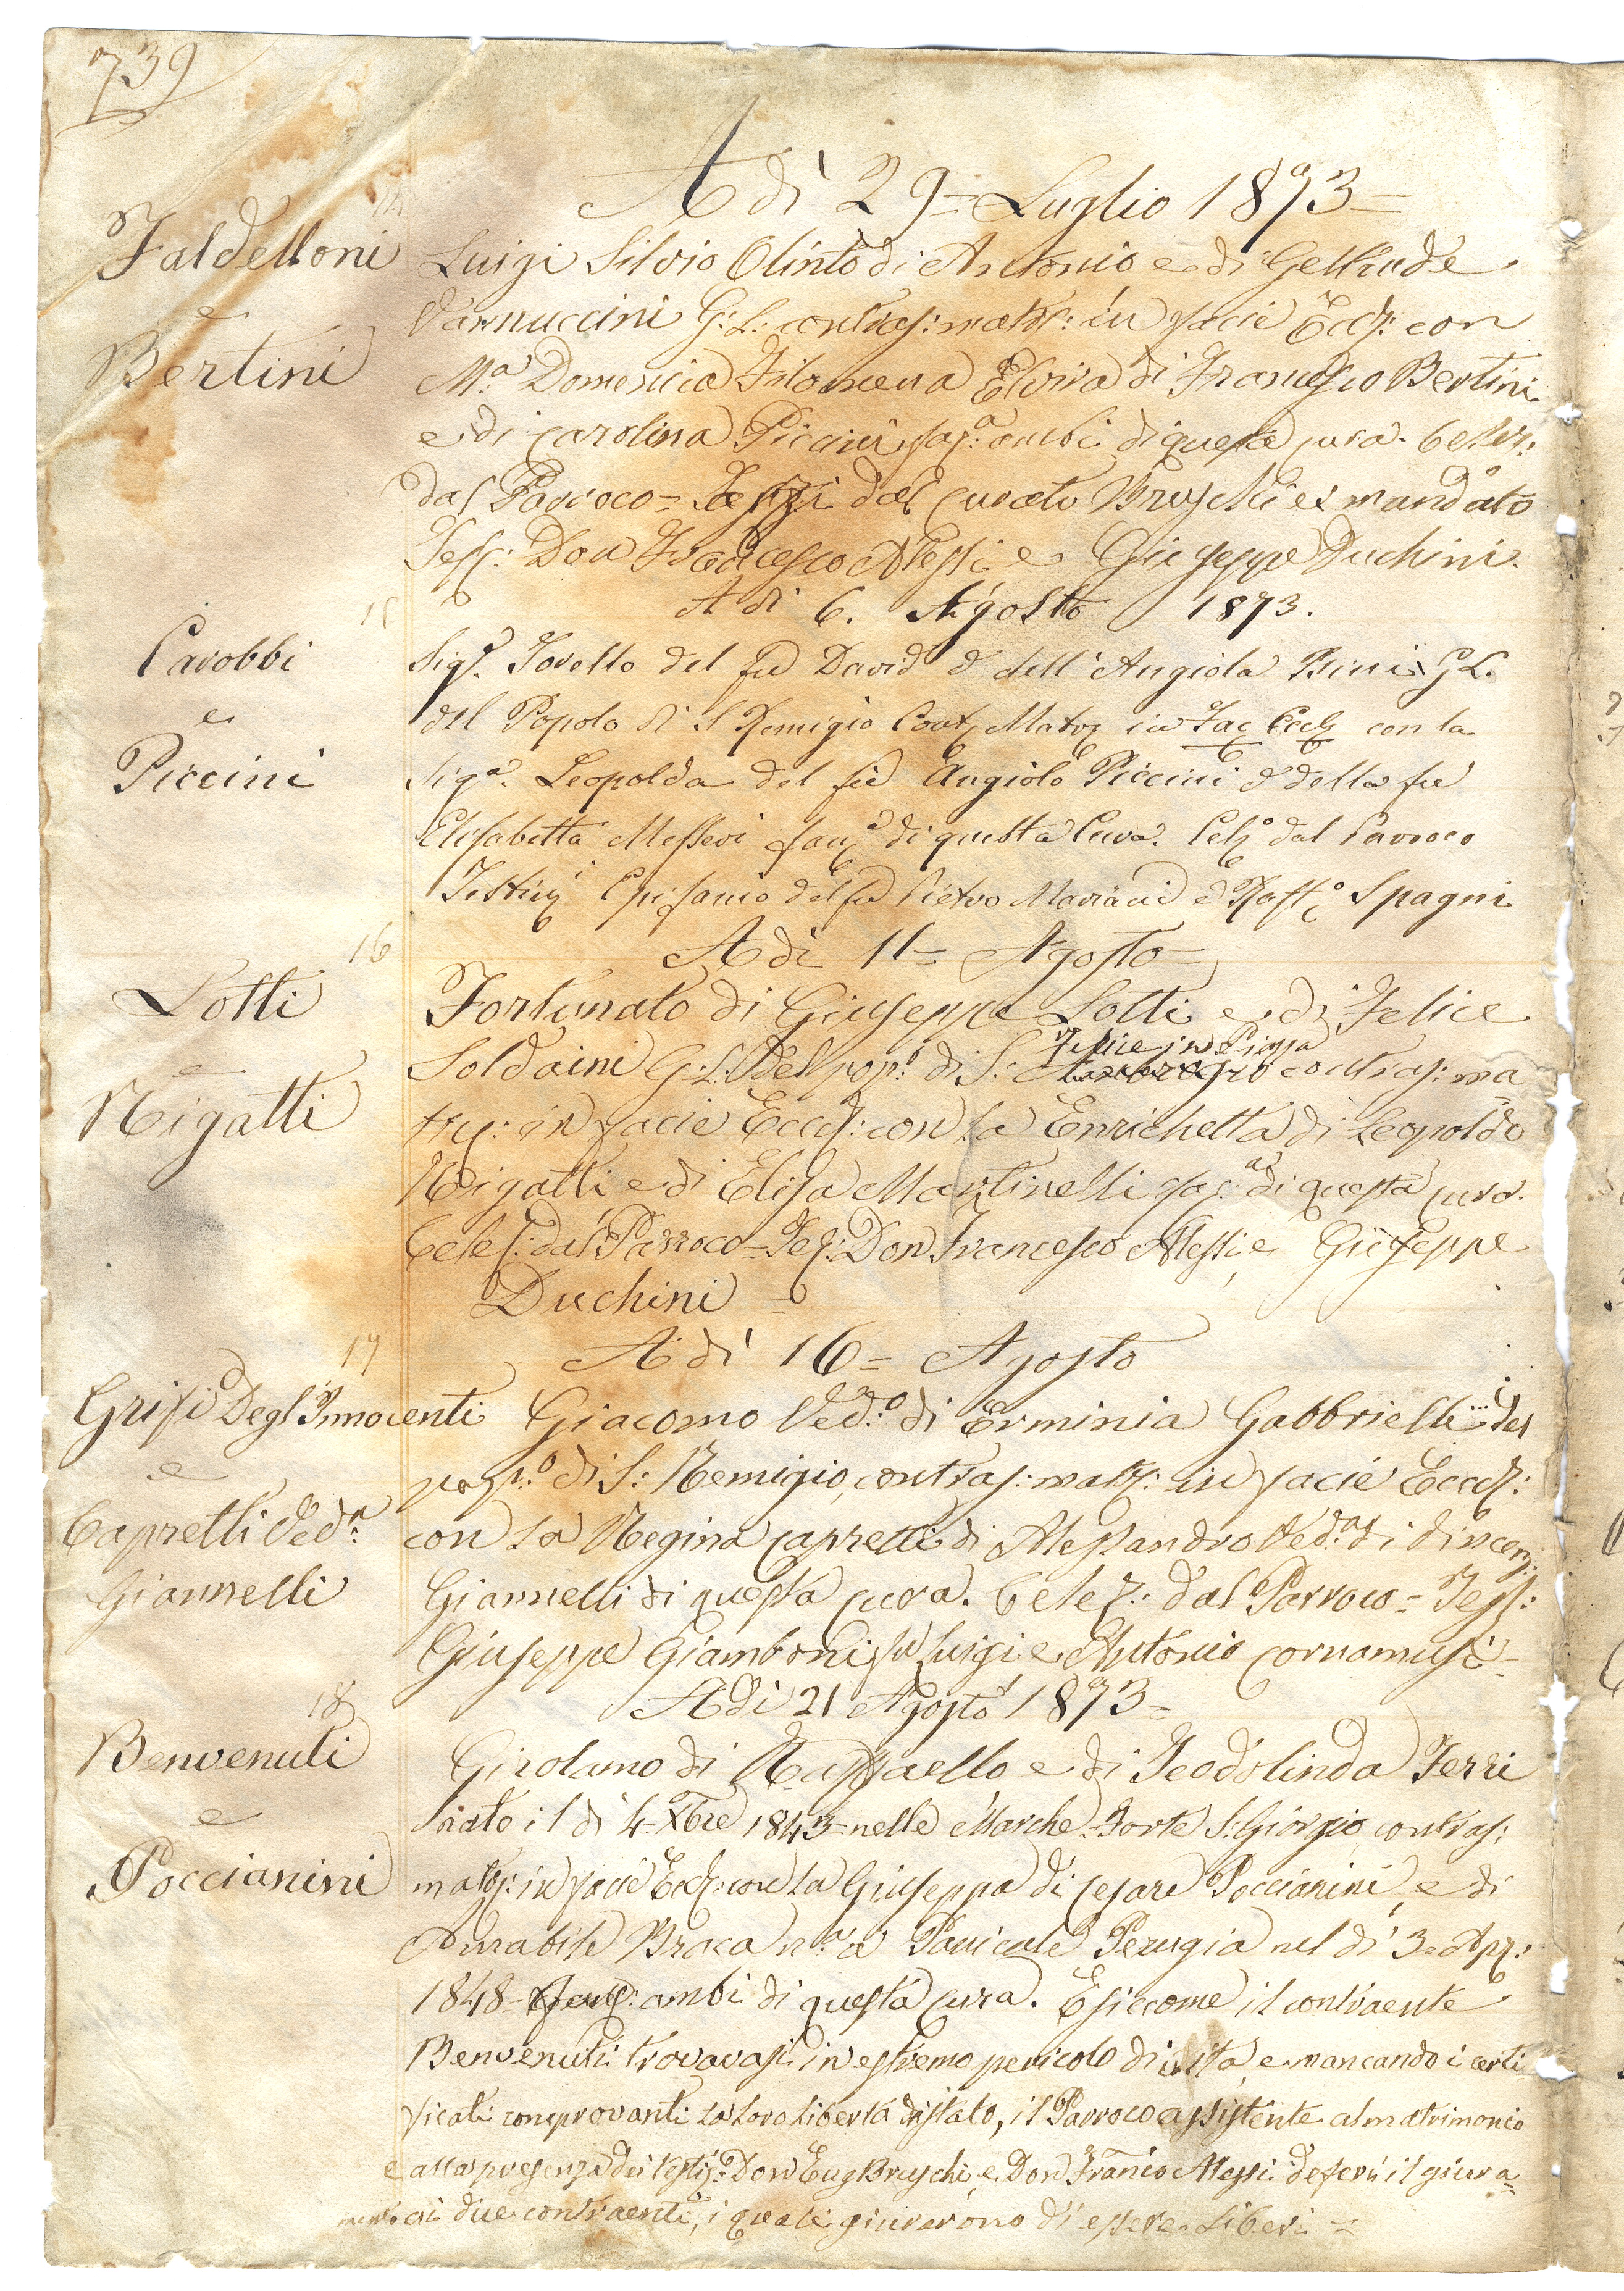 739
A dì 29= Luglio 1873=
14
Faldelloni
e
Bertini
Luigi Silvio Olinto di Antonio e di Geltrude
Vannuccini G: L: contras: matr: in facie Eccl: con
M.a Domenica Filomena Elvira di Francesco Bertini
e di Carolina Piccini fan:a ambi di questa cura. Celebr:
dal Parroco = dal Curato Bruschi ex mandato
Tess: Don Francesco Alessi e Giuseppe Duchini.
15
A dì 6. Agosto 1873.
Carobbi
e
Piccini
Sigr. Torello del fu David e dell'Angiola Pini G L.
del Popolo di S Remigio Cont Matr in Fac Eccl con la
Sig.a Leopolda del fu Angiolo Piccini e della fu
Elisabetta Messeri fan.a di questa Cura. Cel.o dal Parroco
Testim.i Epifanio del fu Pietro Mariani e Raff.o Spagni
16
A dì 11= Agosto=
Lotti
e
Rigatti
Fortunato di Giuseppe Lotti e di Felice
Soldaini G: L: del pop.o di S: Felice in Piazza contras: ma
tr: in facie Eccl: con la Enrichetta di Leopoldo
Rigatti e di Elisa Martinelli fan:a di questa cura.
Celeb: dal Parroco = Tes: Don Francesco Alessi e Giuseppe
Duchini =
17
A dì 16= Agosto
Grifi Degl'Innocenti Giacomo Ved.o di Erminia Gabbrielli del
e
Capretti Ved.a
Giannelli
pop.o di S: Remigio, contras: matr: in facie Eccl:
con la Regina Capretti di Alessandro Ved.a di Vincenz:
Giannelli di questa cura. Celeb: dal Parroco = Tess:
Giuseppe Giamboni fu Luigi e Antonio Cornamusi =
18
A dì 21 Agosto 1873=
Benvenuti
e
Poccianini
Girolamo di Raffaello e di Teodolinda Ferri
nato il dì 4= Xbre 1843= nelle Marche Porto S: Giorgio contras:
matr: in facie Eccl: con la Giuseppa di Cesare Poccianini e di
Amabile Braca n.a a Panicale Perugia nel dì 3= Apr:
1848= ambi di questa cura. E siccome il contraente
Benvenuti trovavasi in estremo pericolo di vita, e mancando i certi
ficati comprovanti la loro libertà di stato, il Parroco assistente al matrimonio
e alla presenza dei testi: Don Eug Bruschi, e Don Franco Alessi deferì il giura=
mento ai due contraenti, i quali giurarono di essere liberi =